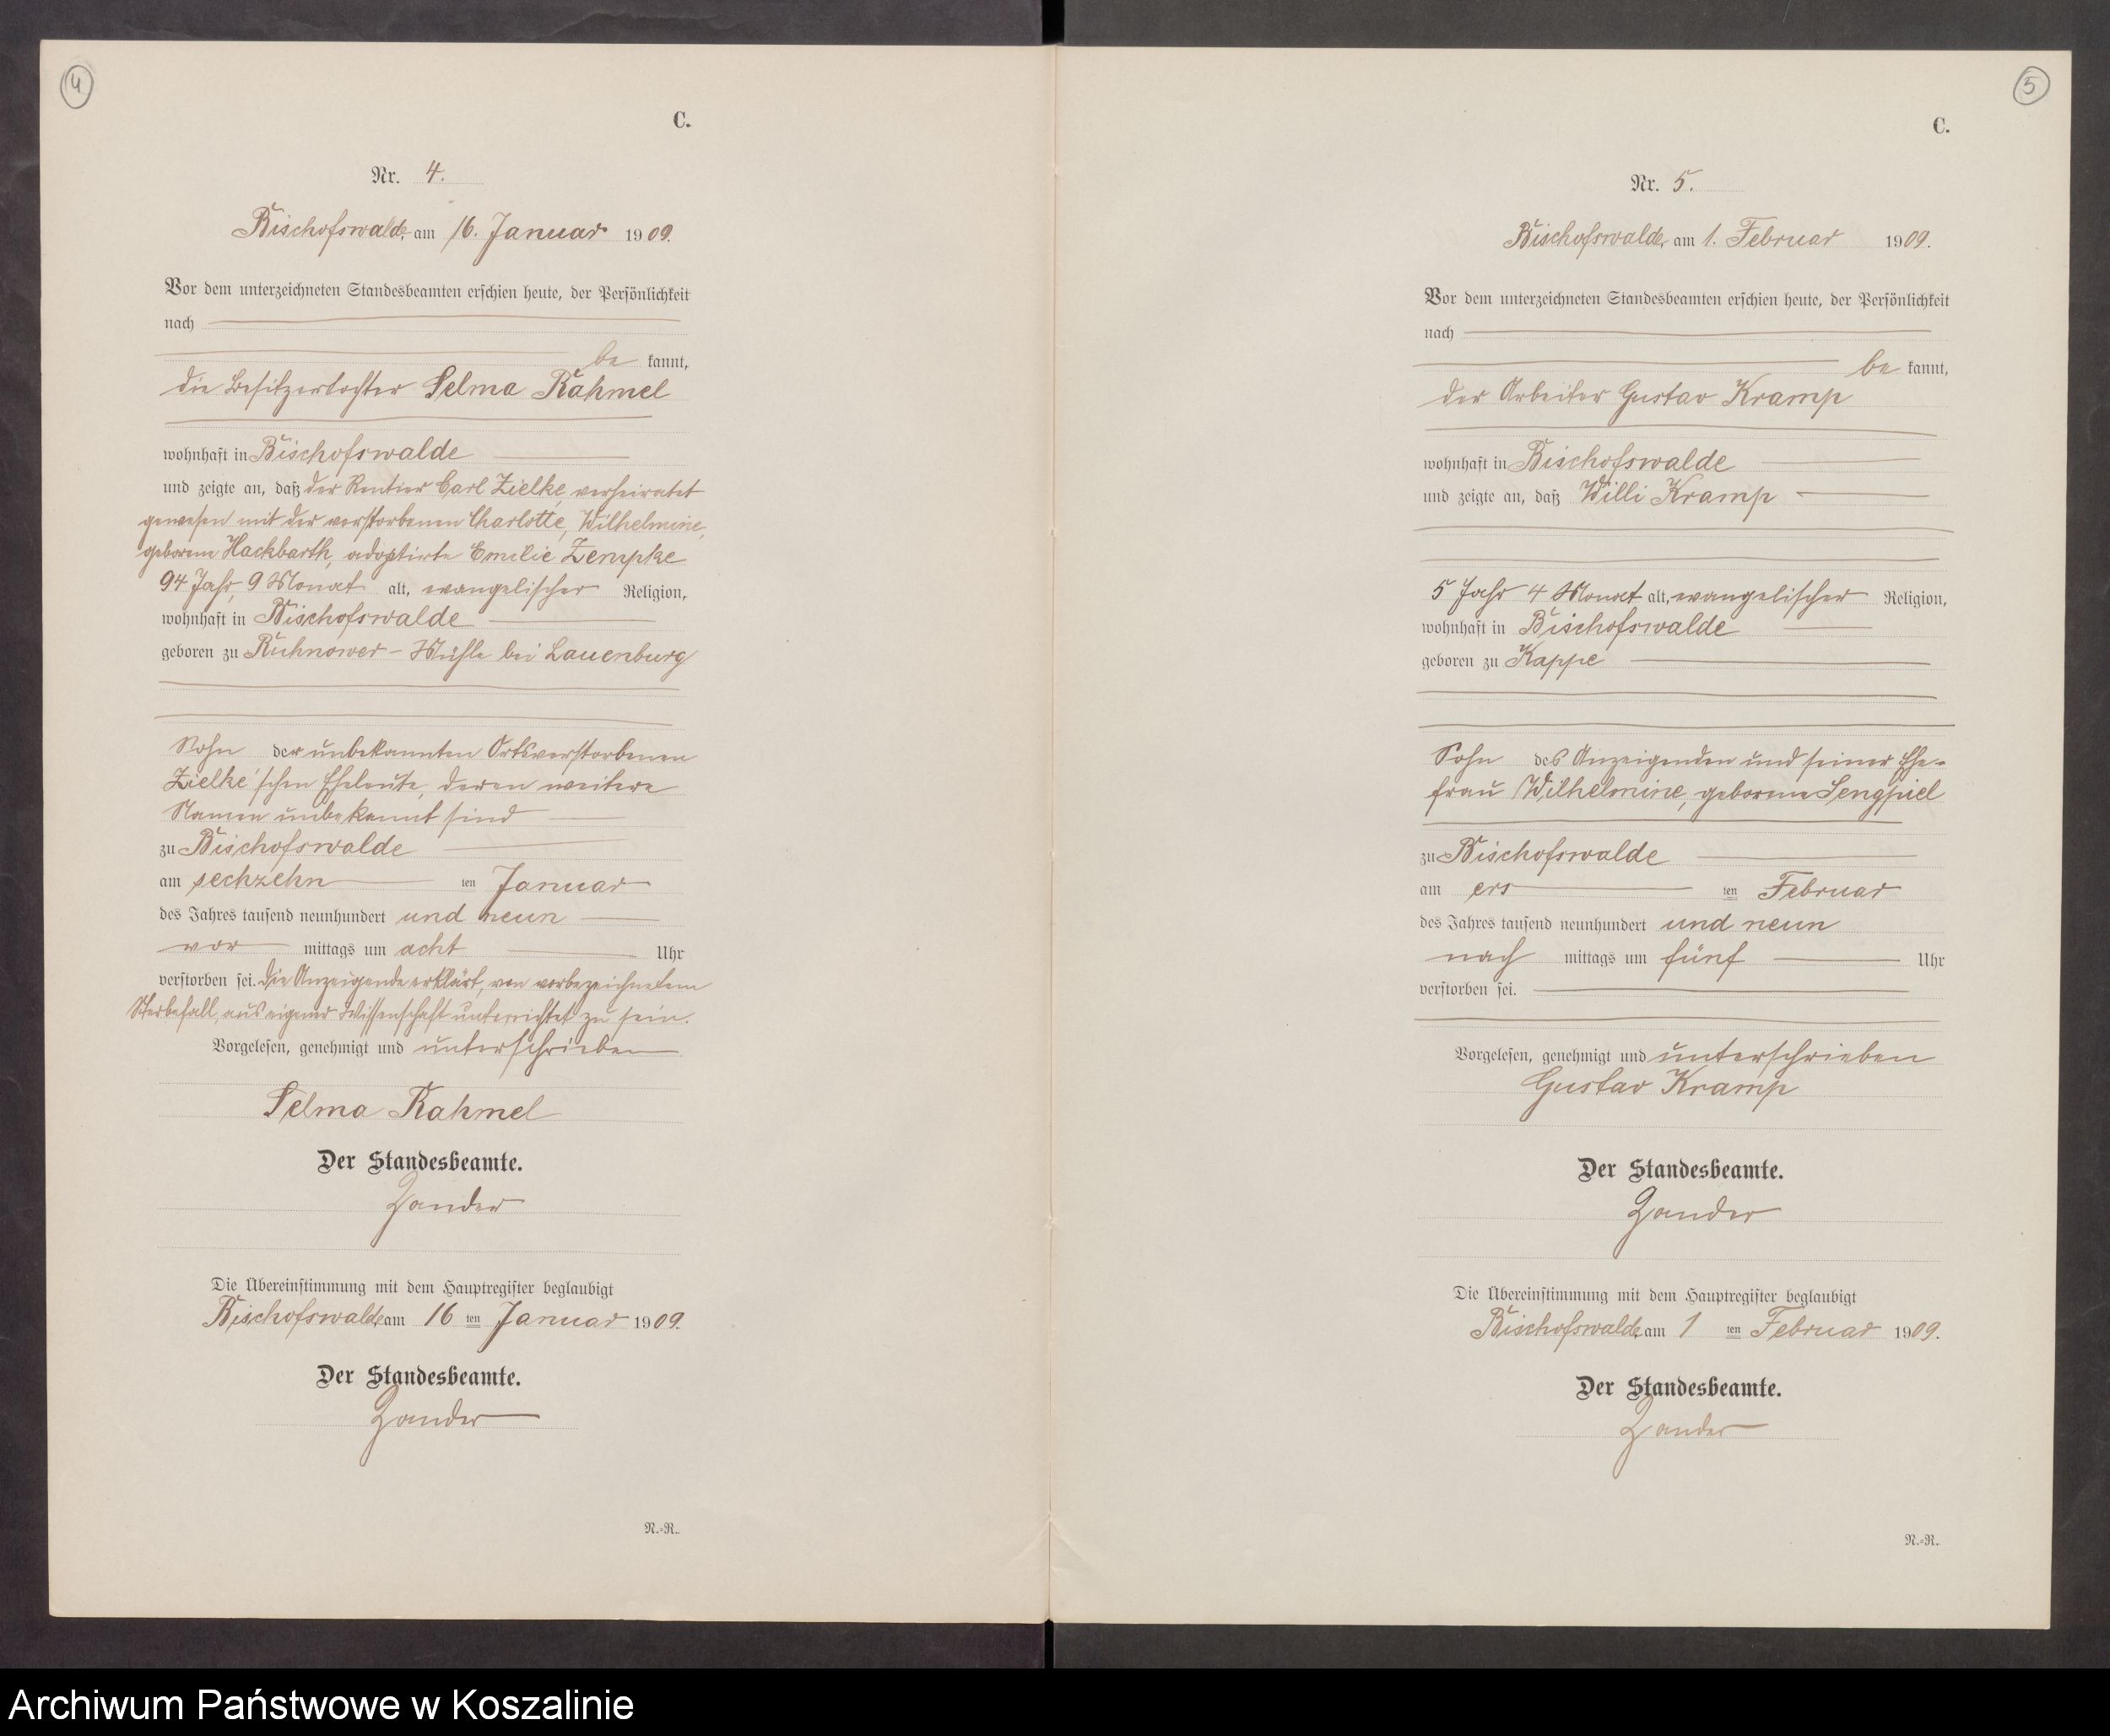 4
C.
Nr. 4.
Bischofswalde, am 16. Januar 1909.
Vor dem unterzeichneten Standesbeamten erschien heute, der Persönlichkeit
nach
be kannt,
die Besitzertochter Selma Rahmel
wohnhaft in Bischofswalde
und zeigte an, daß der Rentier Carl Zielke, verheiratet
gewesen mit der verstorbenen Charlotte, Wilhelmine,
geborene Hackbarth, adoptirte Emilie Zempke
94 Jahr, 9 Monat alt, evangelischer Religion,
wohnhaft in Bischofswalde
geboren zu Ruhnower-Mühle bei Lauenburg
Sohn der unbekannten Ortsverstorbenen
Zielke'schen Eheleute, deren weitere
Namen unbekannt sind
zu Bischofswalde
am sechzehn ten Januar
des Jahres tausend neunhundert und neun
vor mittags um acht Uhr
verstorben sei. Die Anzeigende erklärt, von vorbezeichnetem
Sterbefall, aus eigener Wissenschaft unterrichtet zu sein.
Vorgelesen, genehmigt und unterschrieben
Selma Rahmel
Der Standesbeamte.
Zander
Die Übereinstimmung mit dem Hauptregister beglaubigt
Bischofswalde, am 16 ten Januar 1909.
Der Standesbeamte.
Zander
N.-R.
5
C.
Nr. 5.
Bischofswalde, am 1. Februar 1909.
Vor dem unterzeichneten Standesbeamten erschien heute, der Persönlichkeit
nach
be kannt,
der Arbeiter Gustav Kramp
wohnhaft in Bischofswalde
und zeigte an, daß Willi Kramp
5 Jahr 4 Monat alt, evangelischer Religion,
wohnhaft in Bischofswalde
geboren zu Kappe
Sohn des Anzeigenden und seiner Ehe-
frau Wilhelmine, geborene Sengpiel
zu Bischofswalde
am ers ten Februar
des Jahres tausend neunhundert und neun
nach mittags um fünf Uhr
verstorben sei.
Vorgelesen, genehmigt und unterschrieben
Gustav Kramp
Der Standesbeamte.
Zander
Die Übereinstimmung mit dem Hauptregister beglaubigt
Bischofswalde, am 1 ten Februar 1909.
Der Standesbeamte.
Zander
N.-R.
Archiwum Państwowe w Koszalinie